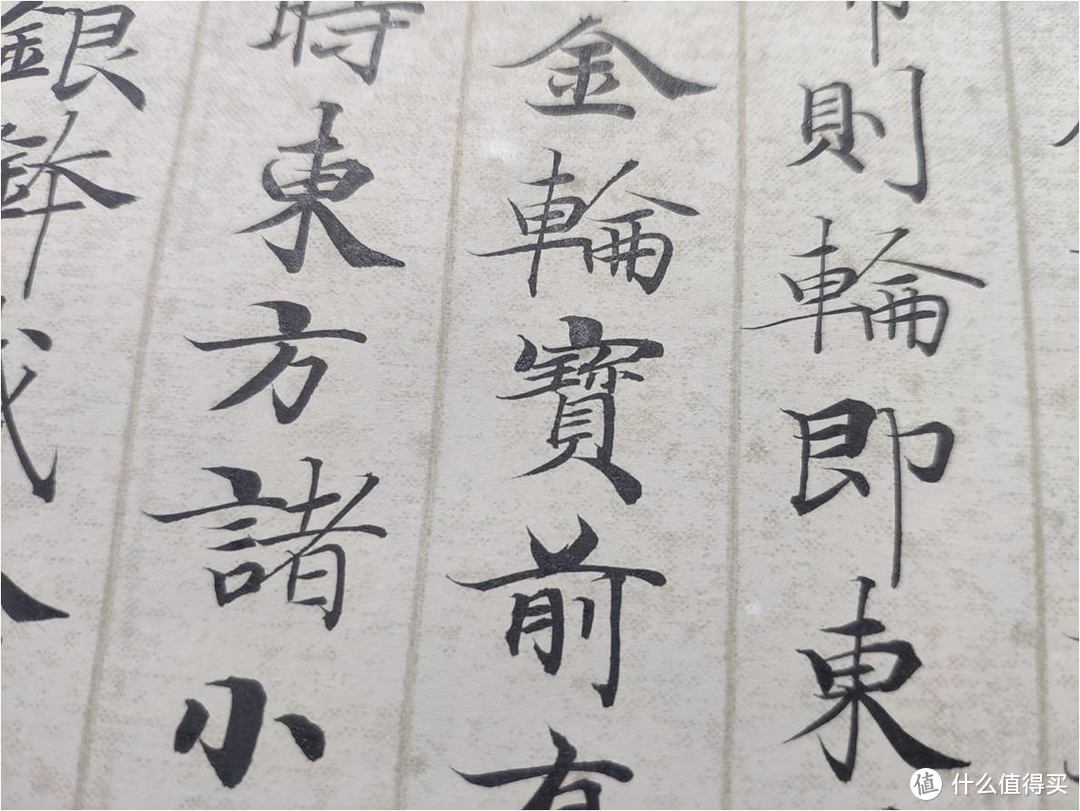 則輪即東
金輪寶前有
時東方諸小
銀鉢盛
值 什么值得买